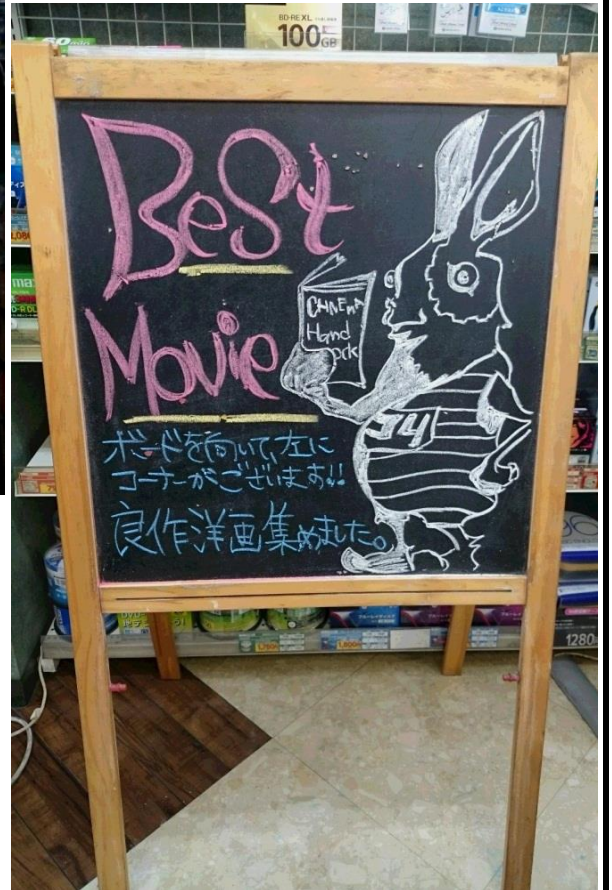 BD-RE XL
100GB
BeSt
Movie
CHNEMA
Hand
ock
14
ボードを向いて、左に
コーナーがございます!!
良作洋画集めました。
1280